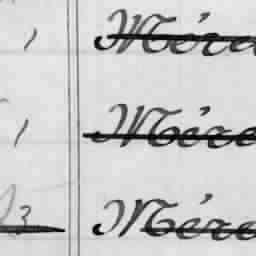 1 Mére
1 Mére
3 Mére